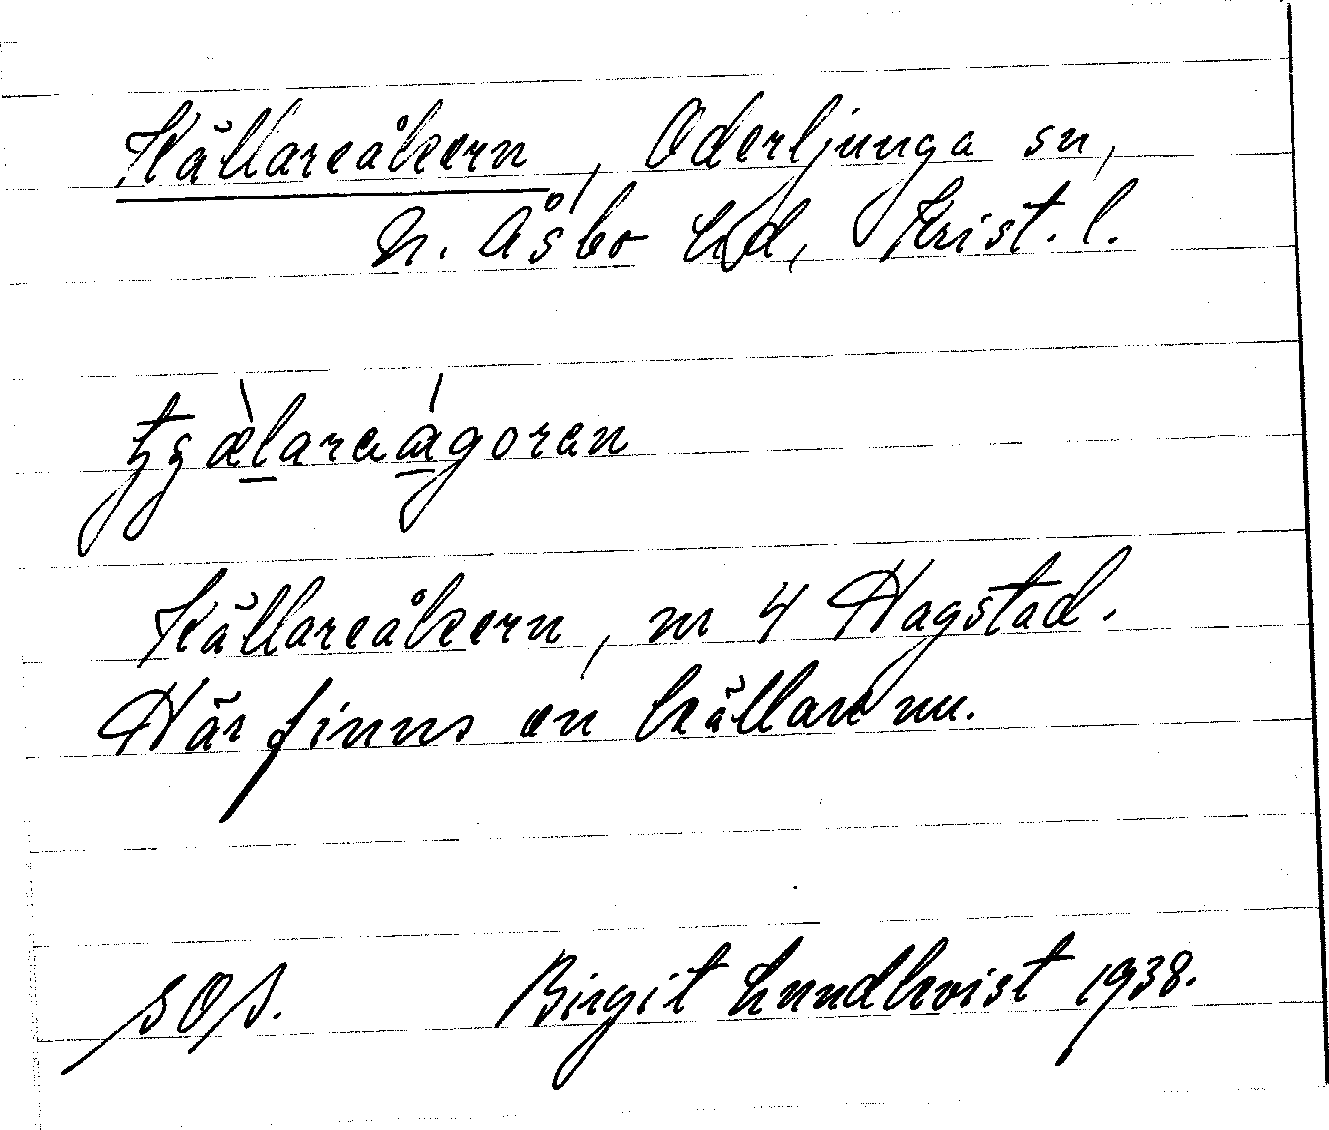 Källareåkern, Oderljunga sn,
N. Åsbo hd, Krist. l.
Källareåkern, m 4 Hagstad.
Här finns en källare nu.
SOS. Birgit Lundkvist 1938.